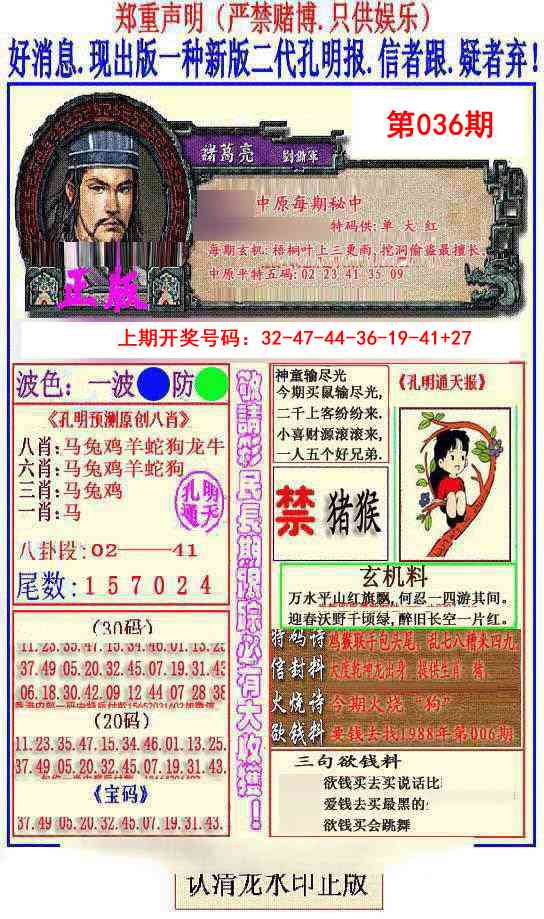 郑重声明（严禁赌博.只供娱乐）
好消息.现出版一种新版二代孔明报.信者跟.疑者弃！
第036期
諸葛亮
中原每期秘中
特码供:单 大 红
每期玄机:梧桐叶上三更雨,挖洞偷盗最擅长.
中原平特五码:02 23 41 35 09
正版
上期开奖号码：32-47-44-36-19-41+27
波色：一波 防
《孔明预测原创八肖》
八肖:马兔鸡羊蛇狗龙牛
六肖:马兔鸡羊蛇狗
三肖:马兔鸡
一肖:马
孔明
通天
八卦段:02——41
尾数:157024
(30码)
11.23.35.47.15.34.46.01.13.25
37.49 05.20.32.45.07.19.31.43
06.18.30.42.09 12 44 07 28 38
(20码)
11.23.35.47.15.34.46.01.13.25.
37.49 05.20.32.45.07.19.31.43.
《宝码》
37.49 05.20.32.45.07.19.31.43.
敬請彩民長期跟踪必有大收獲！
神童输尽光
今期买鼠输尽光,
二千上客纷纷来.
小喜财源滚滚来,
一人五个好兄弟.
《孔明通天报》
禁
猪猴
玄机料
万水平山红旗飘,何忍一四游其间。
迎春沃野千顷绿,醉旧长空一片红。
特码诗 鸡猴联手包头尾，乱七八糟来四九
信封料 天度乾坤龙出身，提供生肖：猪，
火烧诗 今期火烧“狗”
欲钱料 要钱去找1988年第006期
三句欲钱料
欲钱买去买说话比
爱钱去买最黑的
欲钱买会跳舞
认清龙水印正版